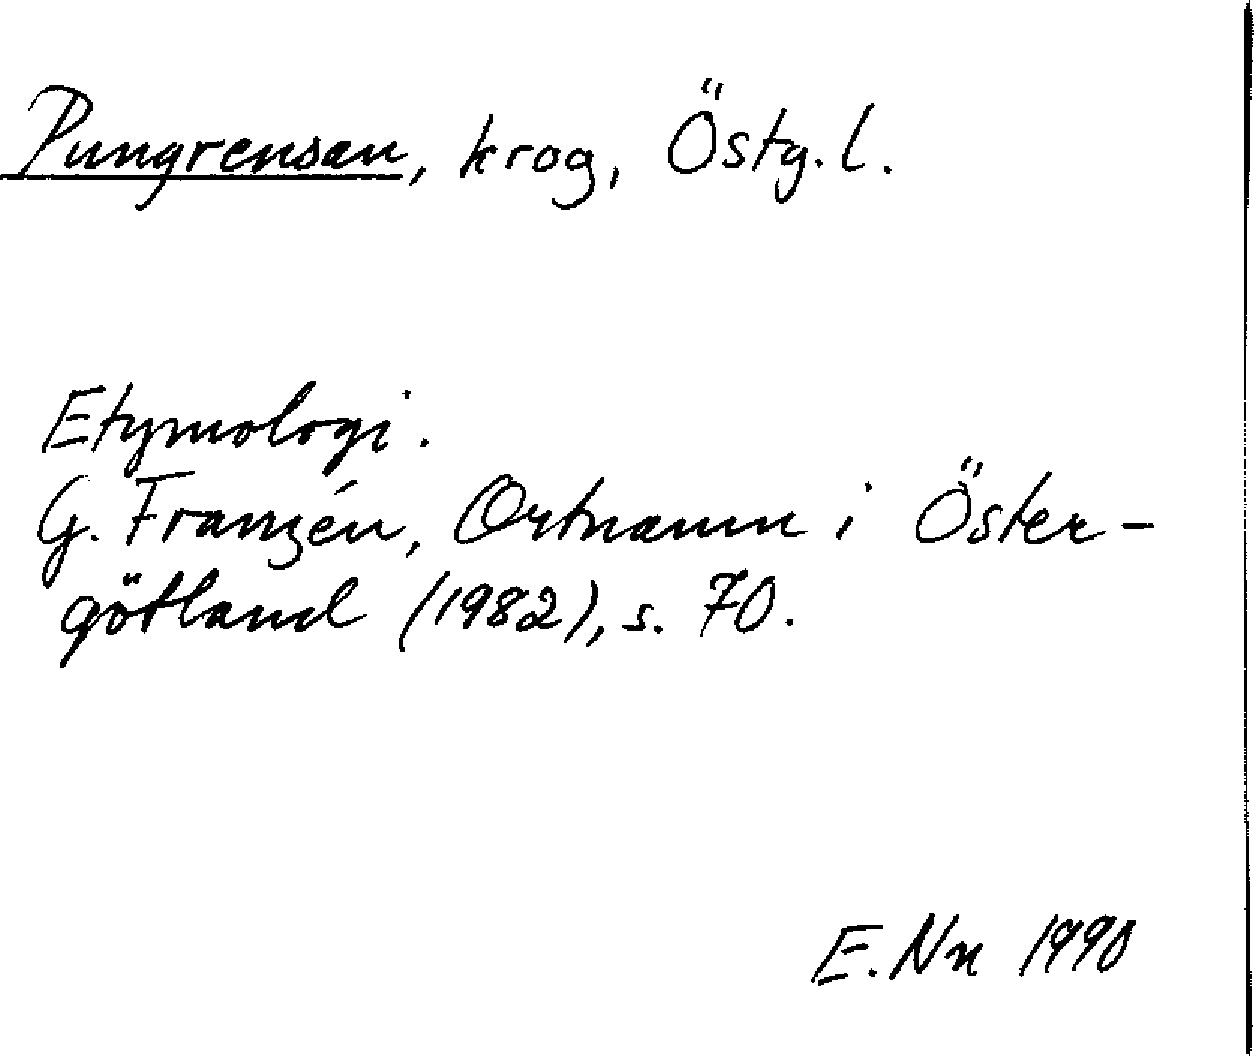 Pungrensan, krog, Östg. l.
Etymologi.
G. Franzén, Ortnamn i Öster-
götland (1982), s. 70.
E. Nn 1990